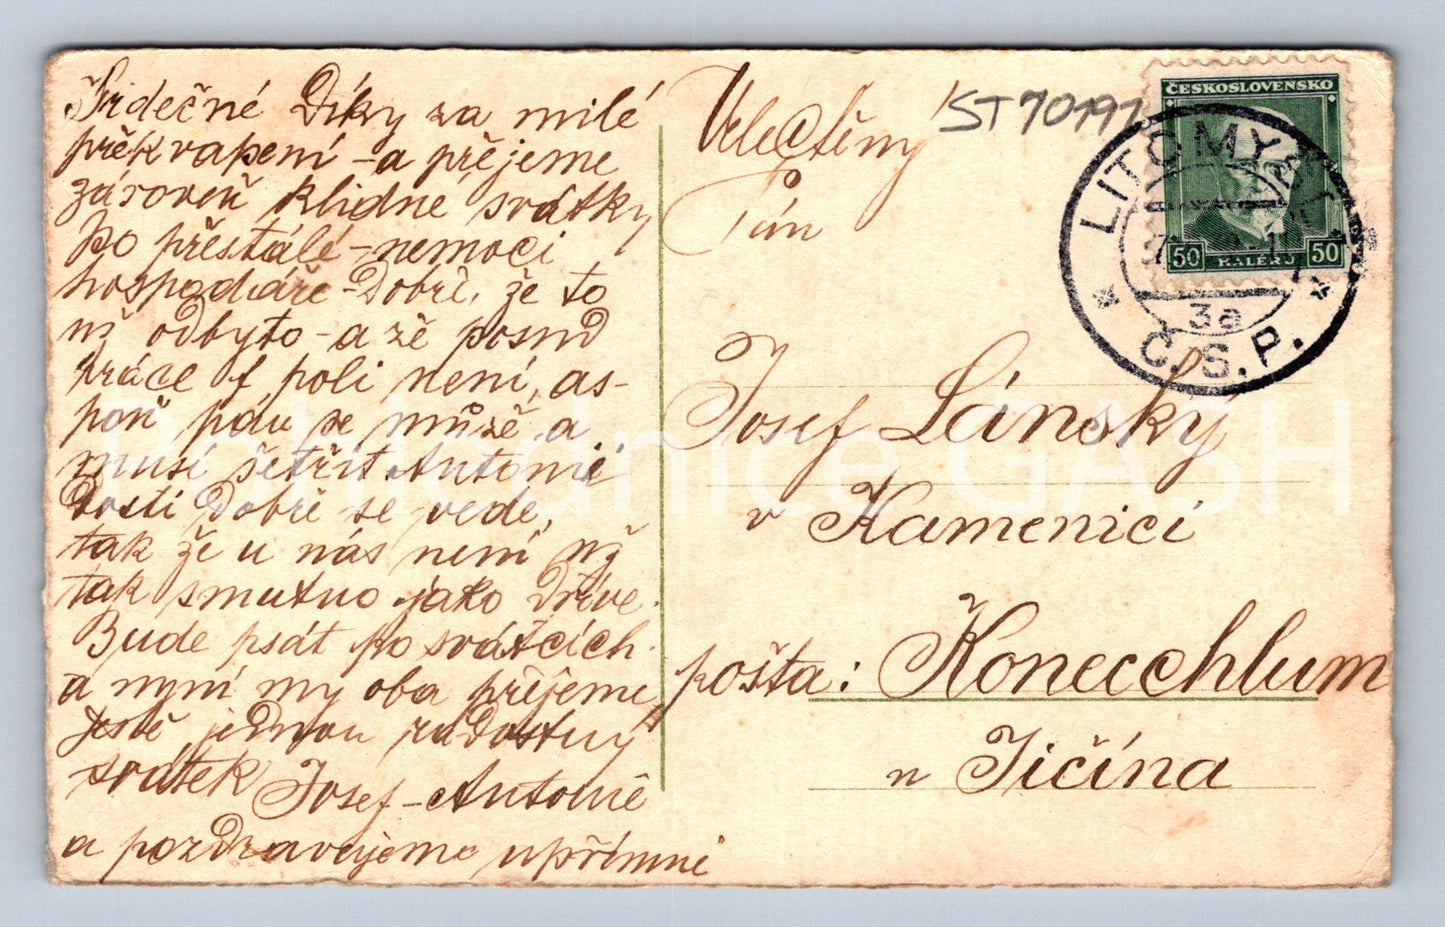 Srdečné Díky za milé
překvapení - a přejeme
zároveň klidné svátky
po přestálé - nemoci
hospodáře - Dobře, že to
už odbyto - a že posud
práce f poli není, as-
poň pálu se může a
musí šetřit Antonii
Dosti Dobře se vede,
tak že u nás není už
tak smutno jako Dříve.
Bude psát po svátcích
a nyní my oba přejeme
Ještě jednou radostný
svátek Josef - Antonie
a pozdravujeme upřímně
Velectěný
Pán
Josef Lánský
v Kamenici
pošta: Konecchlum
u Jičína
ST70191
ČESKOSLOVENSKO
50 HALÉŘŮ 50
LITOMYŠL
3a
Č.S.P.
Antikvariát GASH